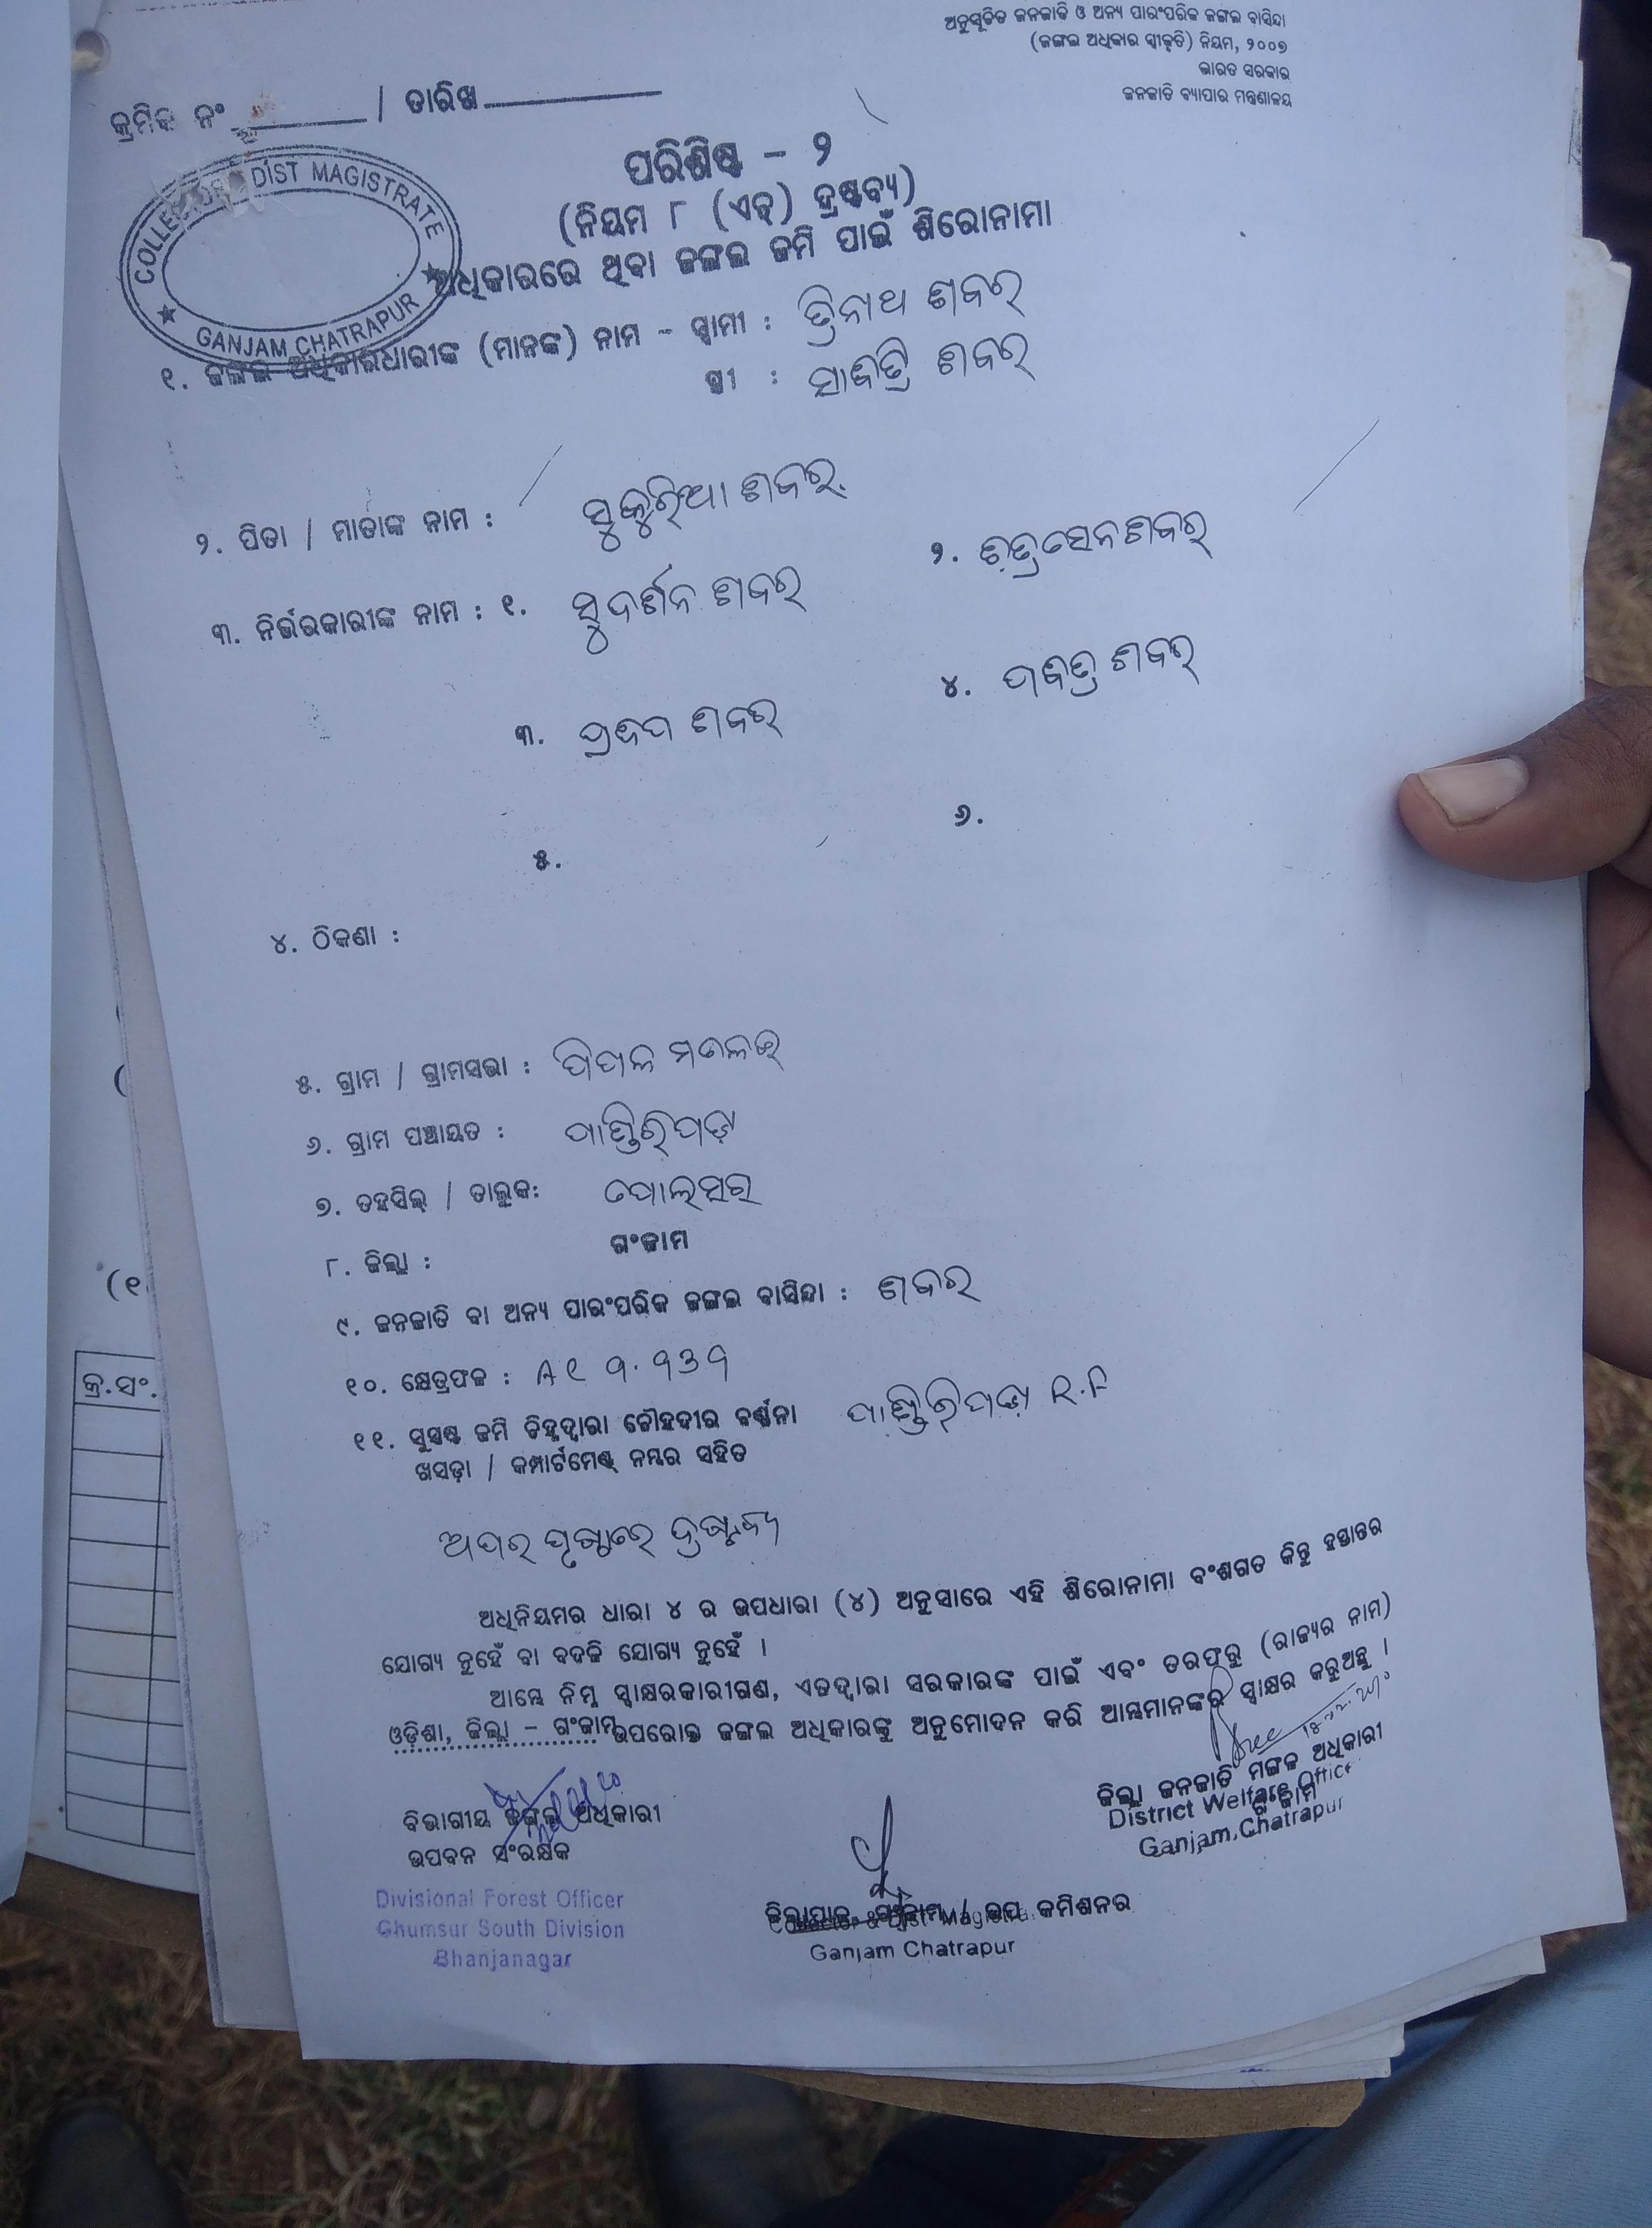 ଅନୁସୂଚିତ ଜନଜାତି ଓ ଅନ୍ୟ ପାରଂପରିକ ଜଙ୍ଗଲ ବାସିନ୍ଦା
(ଜଙ୍ଗଲ ଅଧିକାର ସ୍ୱୀକୃତି) ନିୟମ, ୨୦୦୭
ଭାରତ ସରକାର
ଜନଜାତି ବ୍ୟାପାର ମନ୍ତ୍ରଣାଳୟ
କ୍ରମିକ ନଂ ________ / ତାରିଖ ________
COLLECTOR DIST MAGISTRATE
GANJAM, CHATRAPUR
ପରିଶିଷ୍ଟ - ୨
(ନିୟମ ୮ (ଏଚ୍) ଦ୍ରଷ୍ଟବ୍ୟ)
ଅଧିକାରରେ ଥିବା ଜଙ୍ଗଲ ଜମି ପାଇଁ ଶିରୋନାମା
୧. ଜଙ୍ଗଲ ଅଧିକାରଧାରୀଙ୍କ (ମାନଙ୍କ) ନାମ - ସ୍ୱାମୀ : ତ୍ରିନାଥ ଶବର
ସ୍ତ୍ରୀ : ସାବିତ୍ରି ଶବର
୨. ପିତା / ମାତାଙ୍କ ନାମ : ସୁକୁରିଆ ଶବର
୩. ନିର୍ଭରକାରୀଙ୍କ ନାମ : ୧. ସୁଦର୍ଶନ ଶବର ୨. ଶବର
୩. ଶବର ୪. ପବିତ୍ର ଶବର
୫. ୬.
୪. ଠିକଣା :
୫. ଗ୍ରାମ / ଗ୍ରାମସଭା : ପିପଳ
୬. ଗ୍ରାମ ପଞ୍ଚାୟତ : ପାଣ୍ଡିରିପଡ଼ା
୭. ତହସିଲ୍ / ତାଲୁକ: ପୋଲସର
୮. ଜିଲ୍ଲା : ଗଂଜାମ
୯. ଜନଜାତି ବା ଅନ୍ୟ ପାରଂପରିକ ଜଙ୍ଗଲ ବାସିନ୍ଦା : ଶବର
୧୦. କ୍ଷେତ୍ରଫଳ :
୧୧. ସୁସ୍ପଷ୍ଟ ଜମି ଚିହ୍ନଦ୍ୱାରା ଚୌହଦୀର ବର୍ଣ୍ଣନା ପାଣ୍ଡିରିପଡ଼ା R.F
ଖସଡ଼ା / କମ୍ପାର୍ଟମେଣ୍ଟ ନମ୍ବର ସହିତ
ଅପର ପୃଷ୍ଠାରେ ଦ୍ରଷ୍ଟବ୍ୟ
ଅଧିନିୟମର ଧାରା ୪ ର ଉପଧାରା (୪) ଅନୁସାରେ ଏହି ଶିରୋନାମା ବଂଶଗତ କିନ୍ତୁ ହସ୍ତାନ୍ତର
ଯୋଗ୍ୟ ନୁହେଁ ବା ବଦଳି ଯୋଗ୍ୟ ନୁହେଁ ।
ଆମ୍ଭେ ନିମ୍ନ ସ୍ୱାକ୍ଷରକାରୀଗଣ, ଏତଦ୍ୱାରା ସରକାରଙ୍କ ପାଇଁ ଏବଂ ତରଫରୁ (ରାଜ୍ୟର ନାମ)
ଓଡ଼ିଶା, ଜିଲ୍ଲା - ଗଂଜାମ ଉପରୋକ୍ତ ଜଙ୍ଗଲ ଅଧିକାରଙ୍କୁ ଅନୁମୋଦନ କରି ଆମ୍ଭମାନଙ୍କର ସ୍ୱାକ୍ଷର କରୁଅଛୁ ।
ଜିଲ୍ଲା ଜନଜାତି ମଙ୍ଗଳ ଅଧିକାରୀ
ଗଂଜାମ
District Welfare Officer
Ganjam, Chatrapur
ବିଭାଗୀୟ ଜଙ୍ଗଲ ଅଧିକାରୀ
ଉପବନ ସଂରକ୍ଷକ
Divisional Forest Officer
Ghumsur South Division
Bhanjanagar
ଜିଲ୍ଲାପାଳ, ଗଂଜାମ / ଉପ କମିଶନର
Ganjam Chatrapur
(୧
କ୍ର.ସଂ.